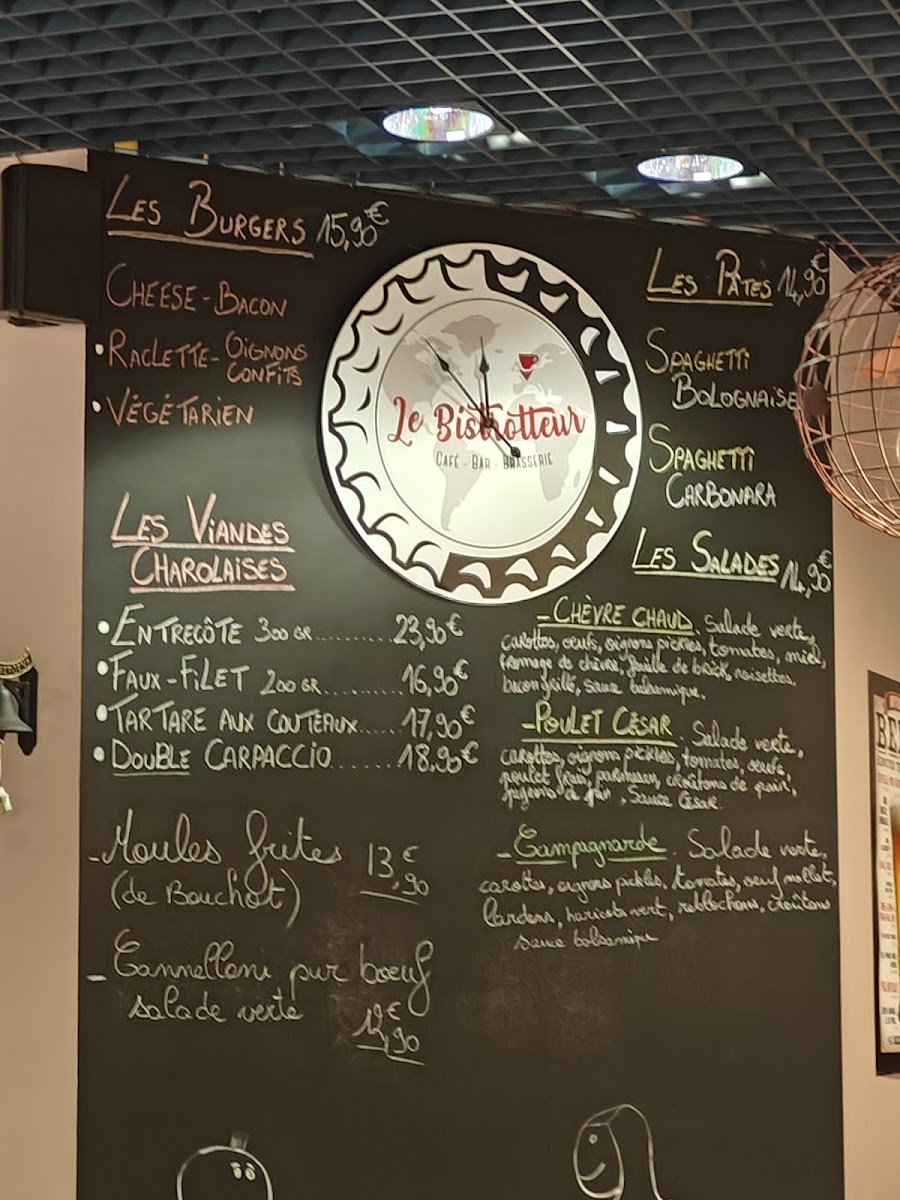 LES BURGERS 15,90€
CHEESE-BACON
• RACLETTE-OIGNONS
CONFITS
• VÉGÉTARIEN
LES VIANDES
CHAROLAISES
• ENTRECÔTE 300 GR.......... 23,90€
• FAUX-FILET 200 GR.......... 16,90€
• TARTARE AUX COUTEAUX..... 17,90€
• DOUBLE CARPACCIO....... 18,90€
- Moules frites 13,90€
(de Bouchot)
- Cannelloni pur boeuf
salade verte €
,90
Le Bistrotteur
CAFÉ - BAR - BRASSERIE
LES PÂTES 14,90€
SPAGHETTI
BOLOGNAISE
SPAGHETTI
CARBONARA
LES SALADES 14,90€
- CHÈVRE CHAUD. Salade verte,
carottes, oeufs, oignons pickles, tomates, miel,
fromage de chèvre, feuille de brick, noisettes.
bacon grillé, sauce balsamique.
- POULET CÉSAR. Salade verte,
carottes, oignons pickles, tomates, oeufs,
poulet frais, parmesan, croûtons de pain,
pignons de pin, Sauce César
- Campagnarde. Salade verte,
carottes, oignons pickles, tomates, oeuf mollet,
lardons, haricots vert, reblochons, croûtons
sauce balsamique